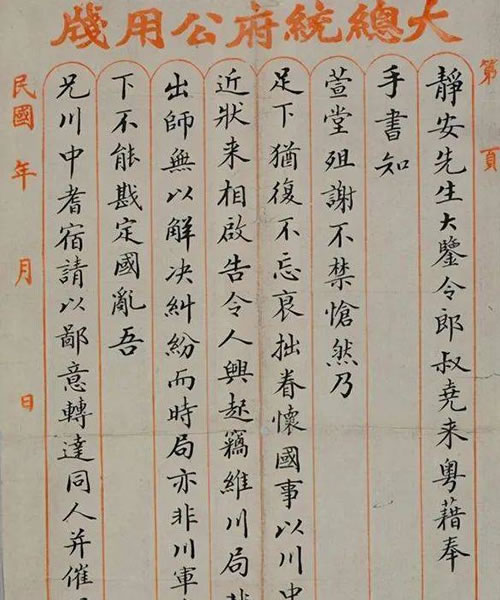 大總統府公用牋
第 頁
靜安先生大鑒令郎叔堯来粤藉奉
手書知
萱堂殂謝不禁愴然乃
足下猶復不忘衰拙眷懷國事以川中
近狀来相啟告令人興起竊維川局非
出師無以解决糾紛而時局亦非川軍
下不能戡定國亂吾
兄川中耆宿請以鄙意轉達同人并催
民國 年 月 日